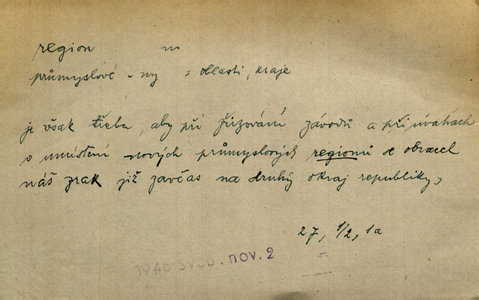 region m
průmyslové - ny = oblasti, kraje
je však třeba, aby při zřizování závodů a při úvahách
o umístění nových průmyslových regionů se obracel
náš zrak již zavčas na druhý okraj republiky,
27, 1/2, 1a
1946 Svob. nov. 2